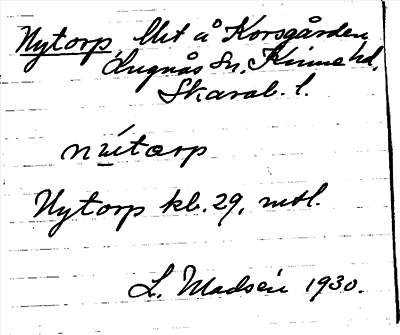 Nytorp, lht å Korsgården,
Lugnås sn. Kinne hd.
Skarab. l.
nútorp
Nytorp kb. 29, mtl.
L. Madsén 1930.